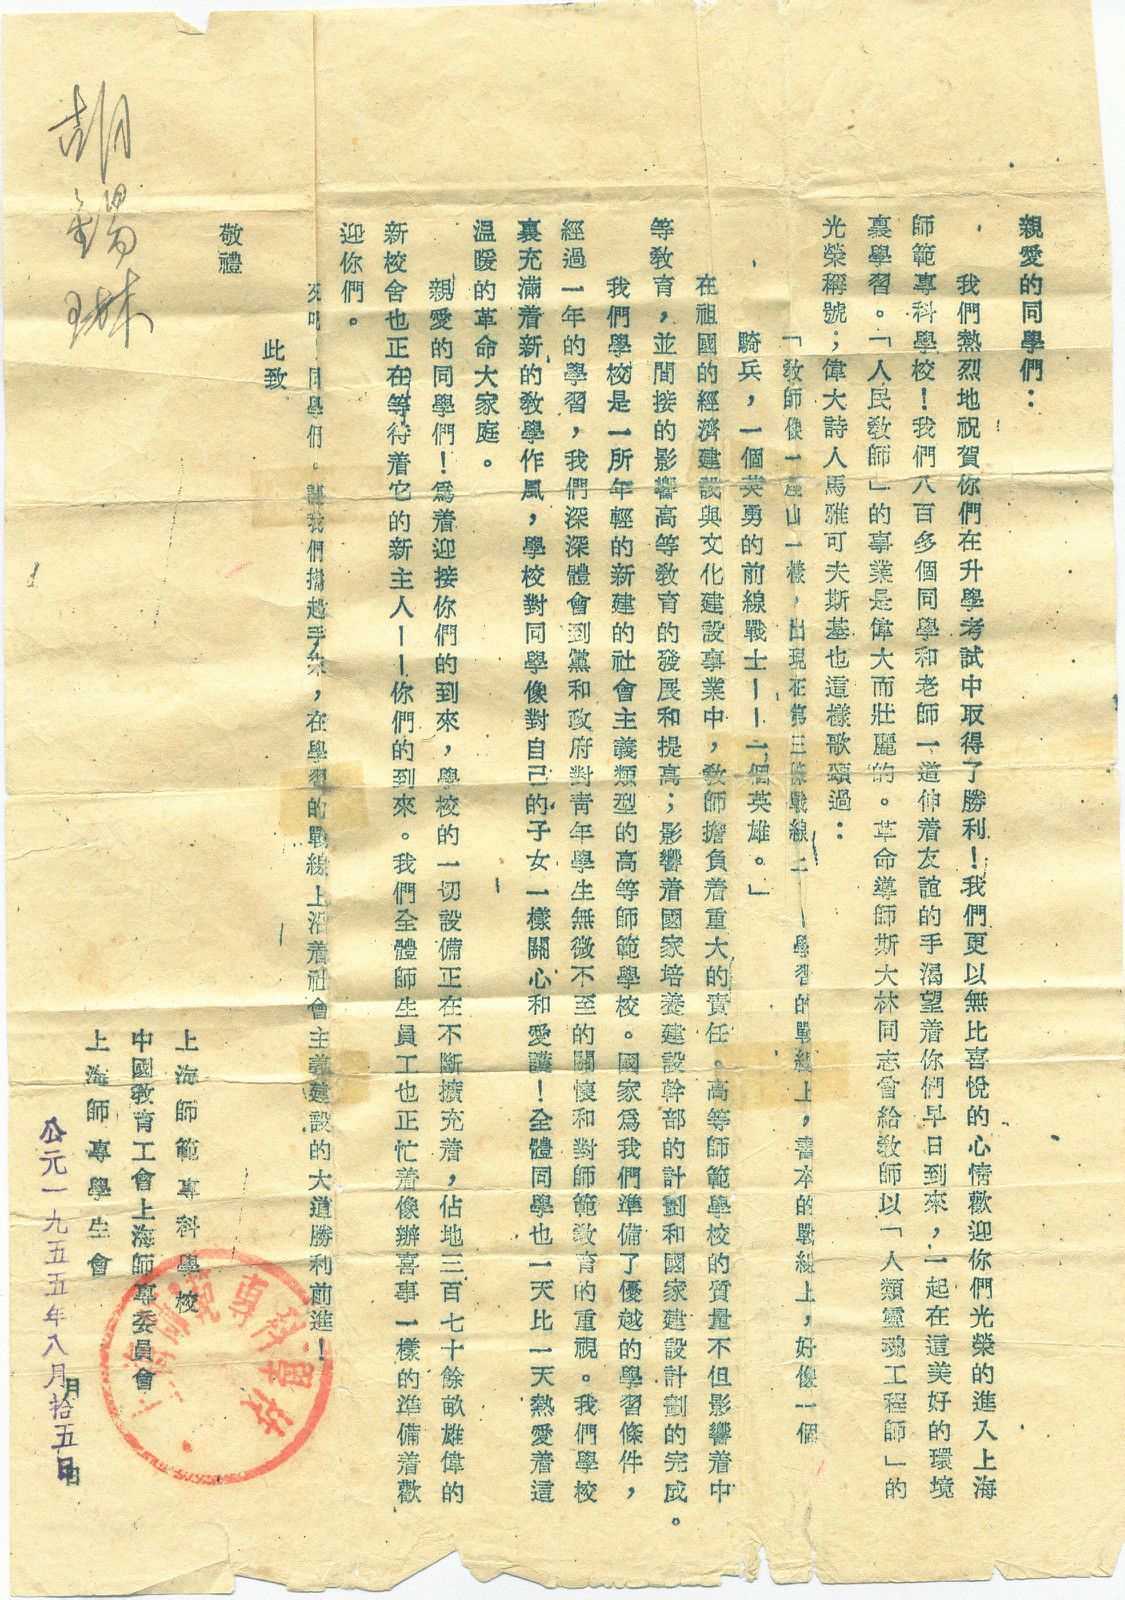 親愛的同學們：
我們熱烈地祝賀你們在升學考試中取得了勝利！我們更以無比喜悅的心情歡迎你們光榮的進入上海
師範專科學校！我們八百多個同學和老師一道伸着友誼的手渴望着你們早日到來，一起在這美好的環境
裏學習。「人民教師」的事業是偉大而壯麗的。革命導師斯大林同志會給教師以「人類靈魂工程師」的
光榮稱號；偉大詩人馬雅可夫斯基也這樣歌頌過：
「教師像一座山一樣，出現在第三條戰線上——學習的戰線上，書本的戰線上，好像一個
騎兵，一個英勇的前線戰士——一個英雄。」
在祖國的經濟建設與文化建設事業中，教師擔負着重大的責任。高等師範學校的質量不但影響着中
等教育，並間接的影響高等教育的發展和提高；影響着國家培養建設幹部的計劃和國家建設計劃的完成。
我們學校是一所年輕的新建的社會主義類型的高等師範學校。國家爲我們準備了優越的學習條件，
經過一年的學習，我們深深體會到黨和政府對靑年學生無微不至的關懷和對師範敎育的重視。我們學校
裏充滿着新的敎學作風，學校對同學像對自己的子女一樣關心和愛護！全體同學也一天比一天熱愛着這
溫暖的革命大家庭。
親愛的同學們！爲着迎接你們的到來，學校的一切設備正在不斷擴充着，佔地三百七十餘畝雄偉的
新校舍也正在等待着它的新主人——你們的到來。我們全體師生員工也正忙着像辦喜事一樣的準備着歡
迎你們。
來吧　同學們。讓我們攜起手來，在學習的戰線上沿着社會主義建設的大道勝利前進！
此致
敬禮
上海師範專科學校
中國敎育工會上海師專委員會
上海師專學生會
公元一九五五年八月拾五日
月　日
上海師範專科學校
胡錫琳